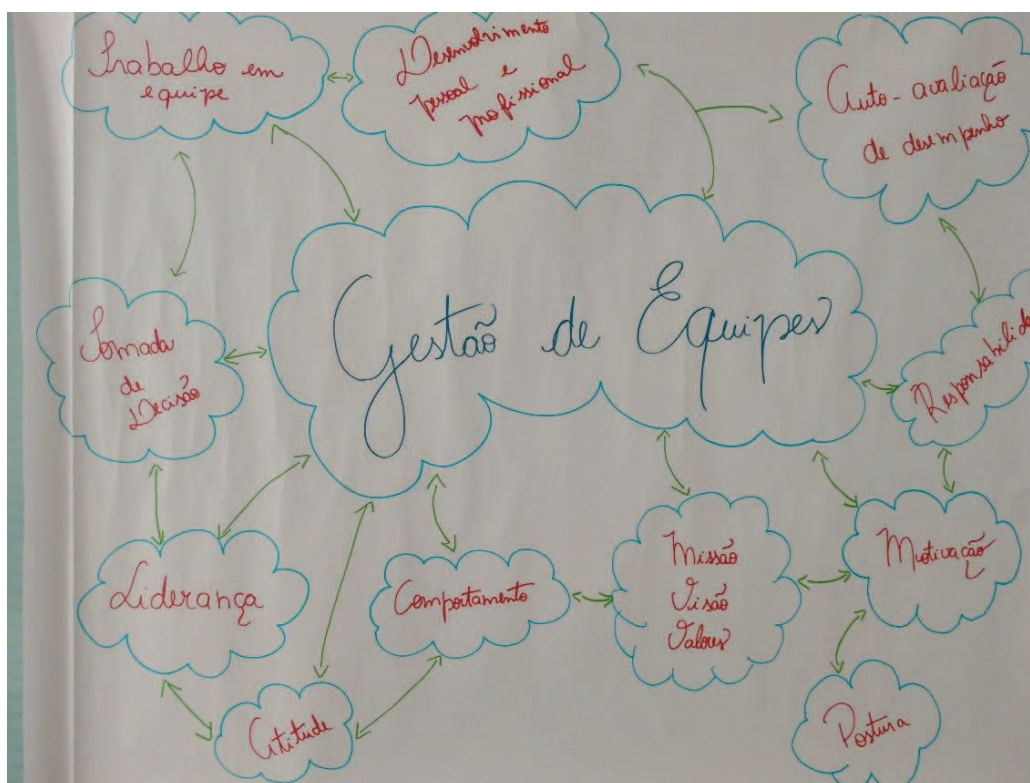 Trabalho em
equipe
Desenvolvimento
pessoal e
profissional
Auto-avaliação
de desempenho
Gestão de Equipes
Tomada
de
Decisão
Responsabilida
Liderança
Comportamento
Missão
Visão
Valores
Motivação
Atitude
Postura